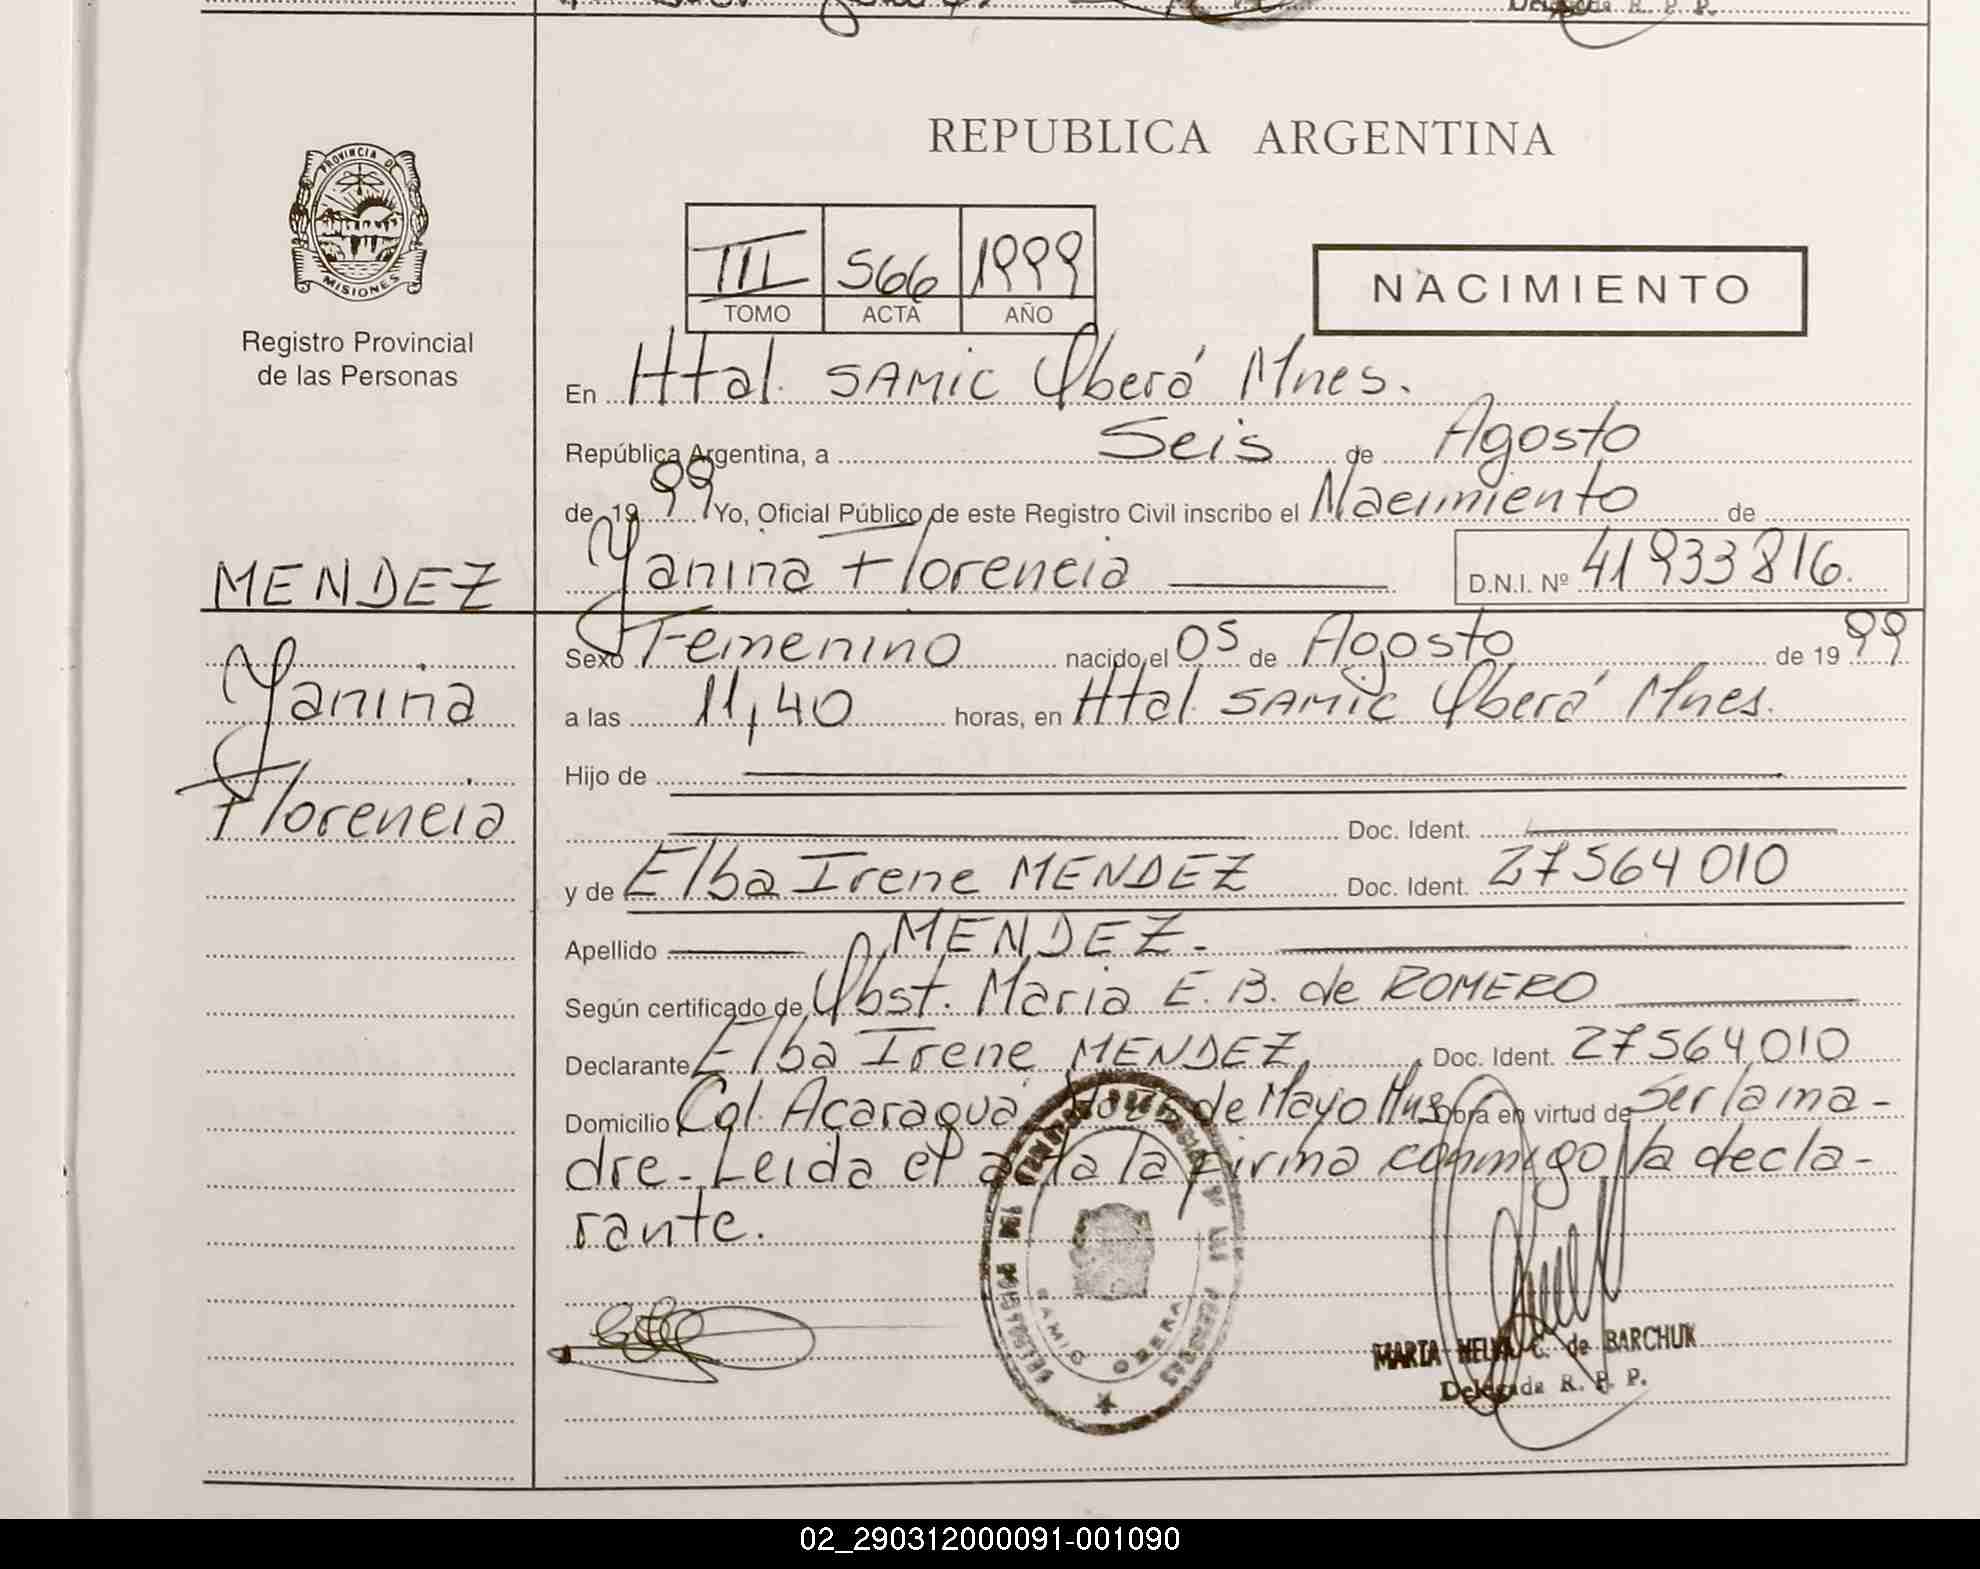 Delegada R. P. P.
REPUBLICA ARGENTINA
PROVINCIA DE
MISIONES
Registro Provincial
de las Personas
III 566 1999
TOMO ACTA AÑO
NACIMIENTO
En Htal. SAMIC Oberá Mnes.
República Argentina, a Seis de Agosto
de 1999 Yo, Oficial Público de este Registro Civil inscribo el Nacimiento de
Yanina Florencia D.N.I. Nº 41933816.
MENDEZ
Yanina
Florencia
Sexo Femenino nacido el 05 de Agosto de 1999
a las 11,40 horas, en Htal SAMIC Oberá Mnes.
Hijo de
Doc. Ident.
y de Elba Irene MENDEZ Doc. Ident. 27564010
Apellido MENDEZ.
Según certificado de Obst. Maria E. B. de ROMERO
Declarante Elba Irene MENDEZ, Doc. Ident. 27564010
Domicilio Col. Acaragua de Mayo Mns Obra en virtud de Ser la ma-
dre. Leida el acta la firma conmigo la decla-
rante.
SAMIC OBERA
MARTA HELVA C. de BARCHUK
Delegada R. P. P.
02_290312000091-001090